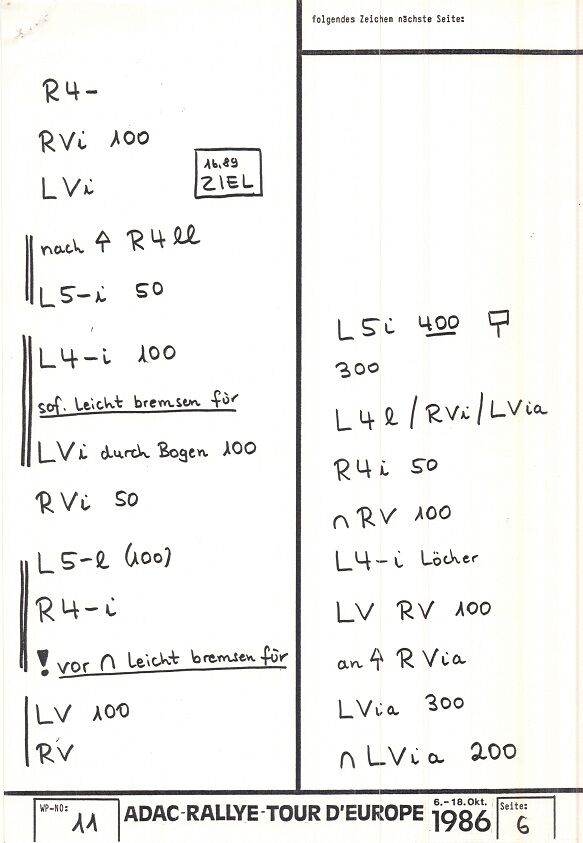 folgendes Zeichem nächste Seite:
R4-
RVi 100
LVi
16,89
ZIEL
nach ↑ R4ll
L5-i 50
L4-i 100
sof. leicht bremsen für
LVi durch Bogen 100
RVi 50
L5-l (100)
R4-i
! vor ∩ leicht bremsen für
LV 100
RV
L5i 400
300
L4l/RVi/LVia
R4i 50
∩RV 100
L4-i Löcher
LV RV 100
an ↑ RVia
LVia 300
∩LVia 200
WP-NO:
11
ADAC-RALLYE-TOUR D'EUROPE
6.-18.Okt.
1986
Seite:
6